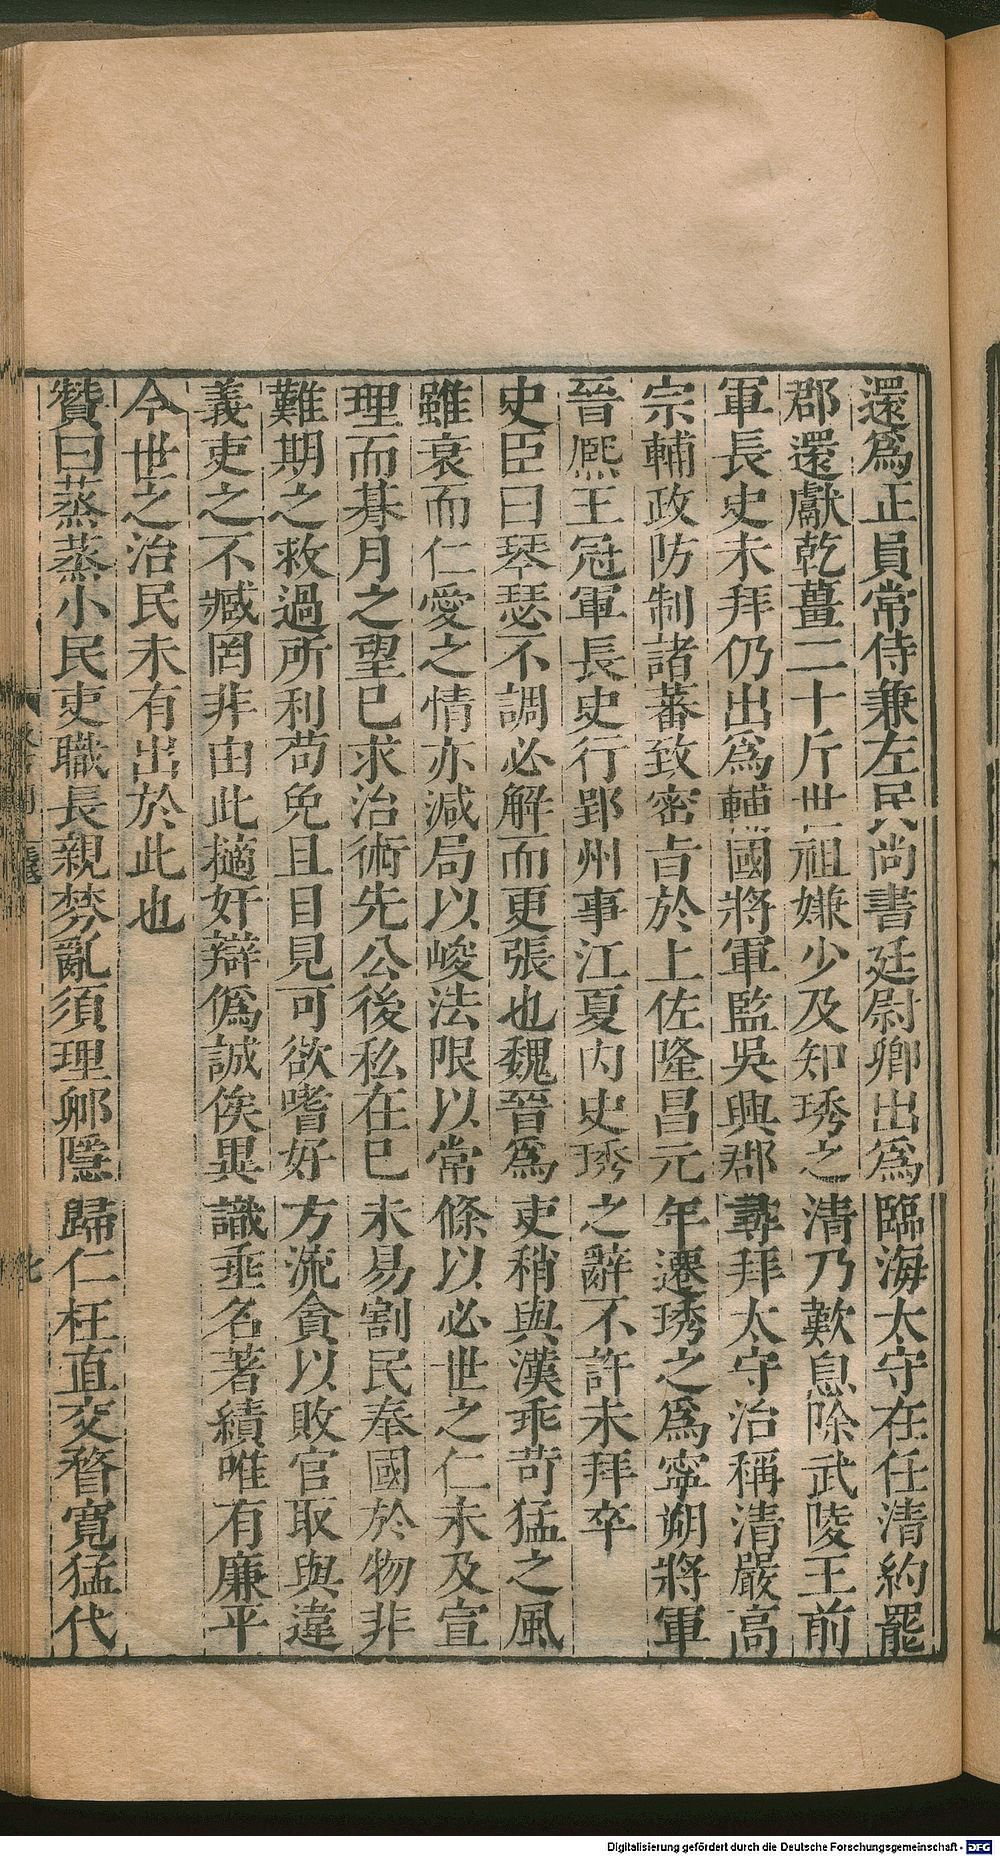 還爲正員常侍兼左民尚書廷尉卿出爲臨海太守在任清約罷
郡還獻乾薑二十斤世祖嫌少及知琇之清乃歎息除武陵王前
軍長史未拜仍出爲輔國將軍監吳興郡尋拜太守治稱清嚴高
宗輔政防制諸蕃致密旨於上佐隆昌元年遷琇之爲寧朔將軍
晉熙王冠軍長史行郢州事江夏內史琇之辭不許未拜卒
史臣曰琴瑟不調必解而更張也魏晉爲吏稍與漢乖苛猛之風
雖衰而仁愛之情亦減局以峻法限以常條以必世之仁未及宣
理而朞月之望已求治術先公後私在已未易割民奉國於物非
難期之救過所利苟免且目見可欲嗜好方流貪以敗官取與違
義吏之不臧罔非由此擿奸辯僞誠俟異識垂名著績唯有廉平
今世之治民未有出於此也
贊曰蒸蒸小民吏職長親棼亂須理䘏隱歸仁枉直交瞀寬猛代
Digitalisierung gefördert durch die Deutsche Forschungsgemeinschaft - DFG